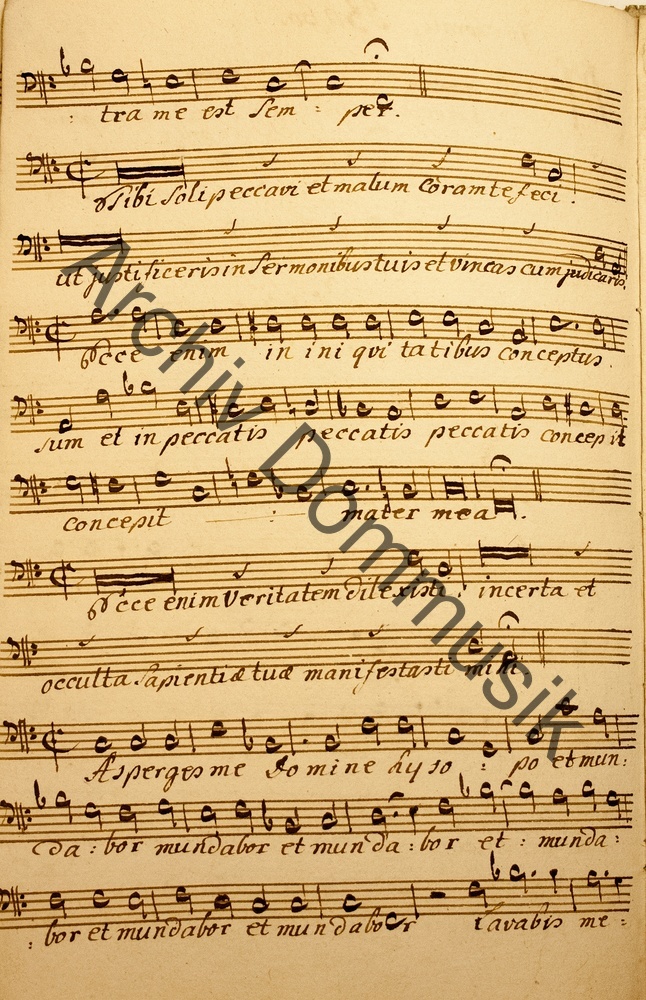 : tra me est sem : per.
Tibi soli peccavi et malum coram te feci.
ut justificeris in sermonibus tuis et vincas cum judicaris.
Ecce enim in ini qui ta tibus conceptus
sum et in peccatis peccatis peccatis concepit
concepit mater mea.
Ecce enim veritatem dilexisti: incerta et
occulta sapientiæ tuæ manifestasti mihi.
Asperges me do mi ne hy so : po et mun:
da : bor mundabor et mun da : bor et : munda:
: bor et mundabor et mun dabor lavabis me :
Archiv Dommusik